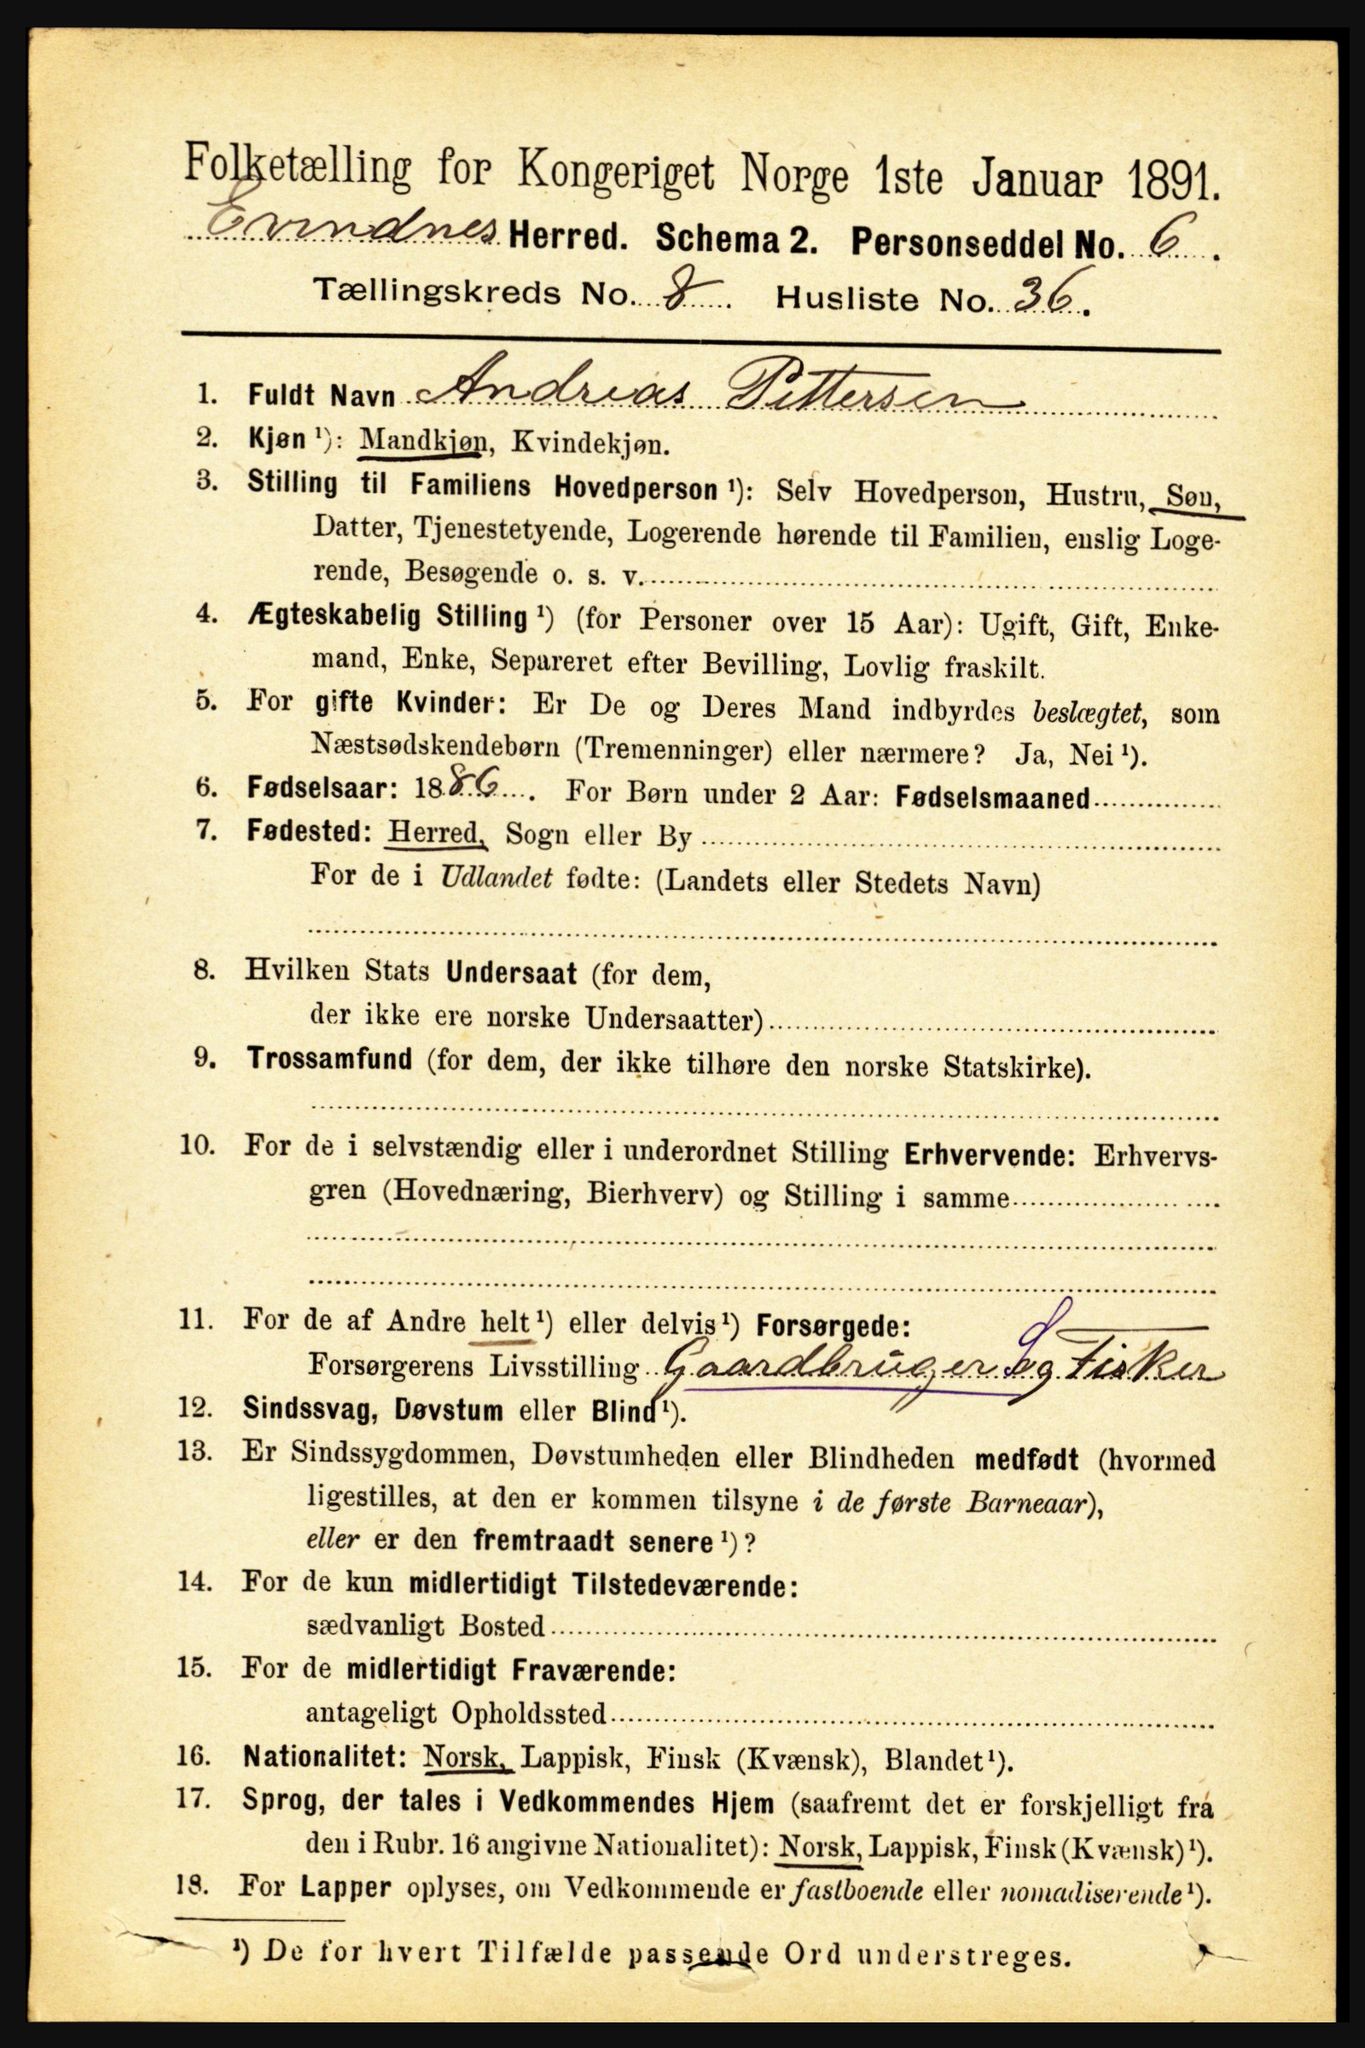 Folketælling for Kongeriget Norge 1ste Januar 1891.
Evindnes Herred. Schema 2. Personseddel No. 6.
Tællingskreds No. 8. Husliste No. 36.
1. Fuldt Navn Andreas Pettersen
2. Kjøn ¹): Mandkjøn, Kvindekjøn.
3. Stilling til Familiens Hovedperson ¹): Selv Hovedperson, Hustru, Søn,
Datter, Tjenestetyende, Logerende hørende til Familien, enslig Loge-
rende, Besøgende o. s. v.
4. Ægteskabelig Stilling ¹) (for Personer over 15 Aar): Ugift, Gift, Enke-
mand, Enke, Separeret efter Bevilling, Lovlig fraskilt.
5. For gifte Kvinder: Er De og Deres Mand indbyrdes beslægtet, som
Næstsødskendebørn (Tremenninger) eller nærmere? Ja, Nei ¹).
6. Fødselsaar: 1886. For Børn under 2 Aar: Fødselsmaaned
7. Fødested: Herred, Sogn eller By
For de i Udlandet fødte: (Landets eller Stedets Navn)
8. Hvilken Stats Undersaat (for dem,
der ikke ere norske Undersaatter)
9. Trossamfund (for dem, der ikke tilhøre den norske Statskirke).
10. For de i selvstændig eller i underordnet Stilling Erhvervende: Erhvervs-
gren (Hovednæring, Bierhverv) og Stilling i samme
11. For de af Andre helt ¹) eller delvis ¹) Forsørgede:
Forsørgerens Livsstilling Gaardbruger S og Fisker
12. Sindssvag, Døvstum eller Blind ¹).
13. Er Sindssygdommen, Døvstumheden eller Blindheden medfødt (hvormed
ligestilles, at den er kommen tilsyne i de første Barneaar),
eller er den fremtraadt senere ¹)?
14. For de kun midlertidigt Tilstedeværende:
sædvanligt Bosted
15. For de midlertidigt Fraværende:
antageligt Opholdssted
16. Nationalitet: Norsk, Lappisk, Finsk (Kvænsk), Blandet ¹).
17. Sprog, der tales i Vedkommendes Hjem (saafremt det er forskjelligt fra
den i Rubr. 16 angivne Nationalitet): Norsk, Lappisk, Finsk (Kvænsk) ¹).
18. For Lapper oplyses, om Vedkommende er fastboende eller nomadiserende ¹).
¹) De for hvert Tilfælde passende Ord understreges.